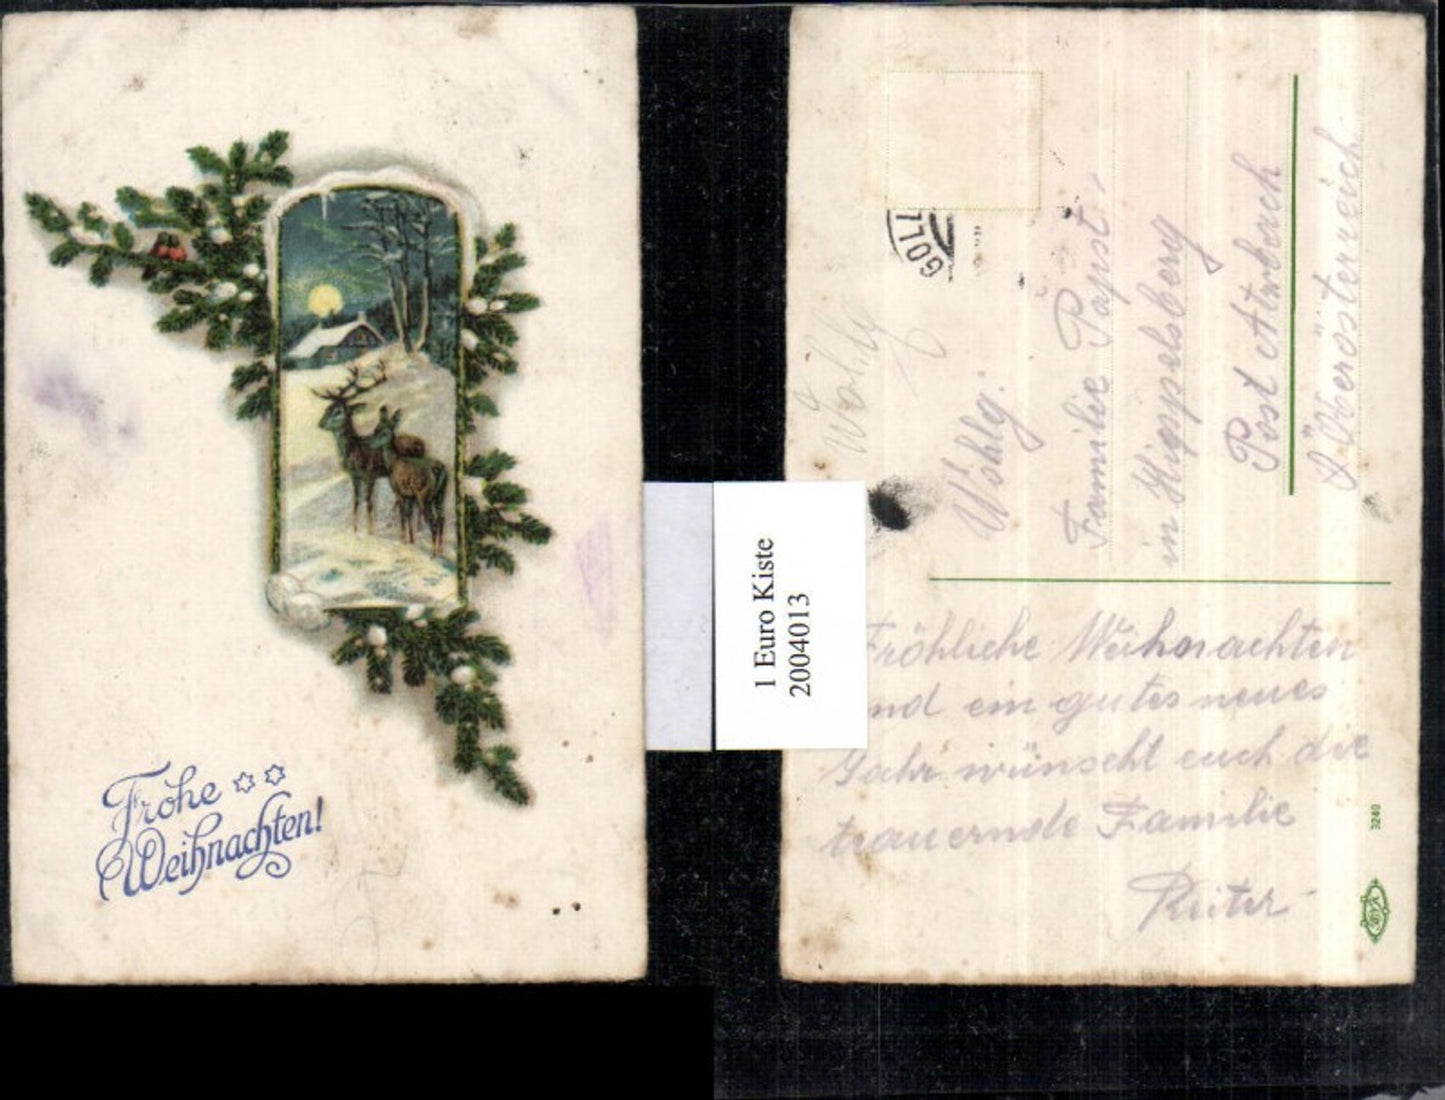 Frohe
Weihnachten!
1 Euro Kiste
2004013
GOLL
Wohlg.
Familie Papst,
in Hippelsberg
Post Atzbach
Oberösterreich
Fröhliche Weihnachten
und ein gutes neues
Jahr wünscht euch die
trauernde Familie
Reiter
3240